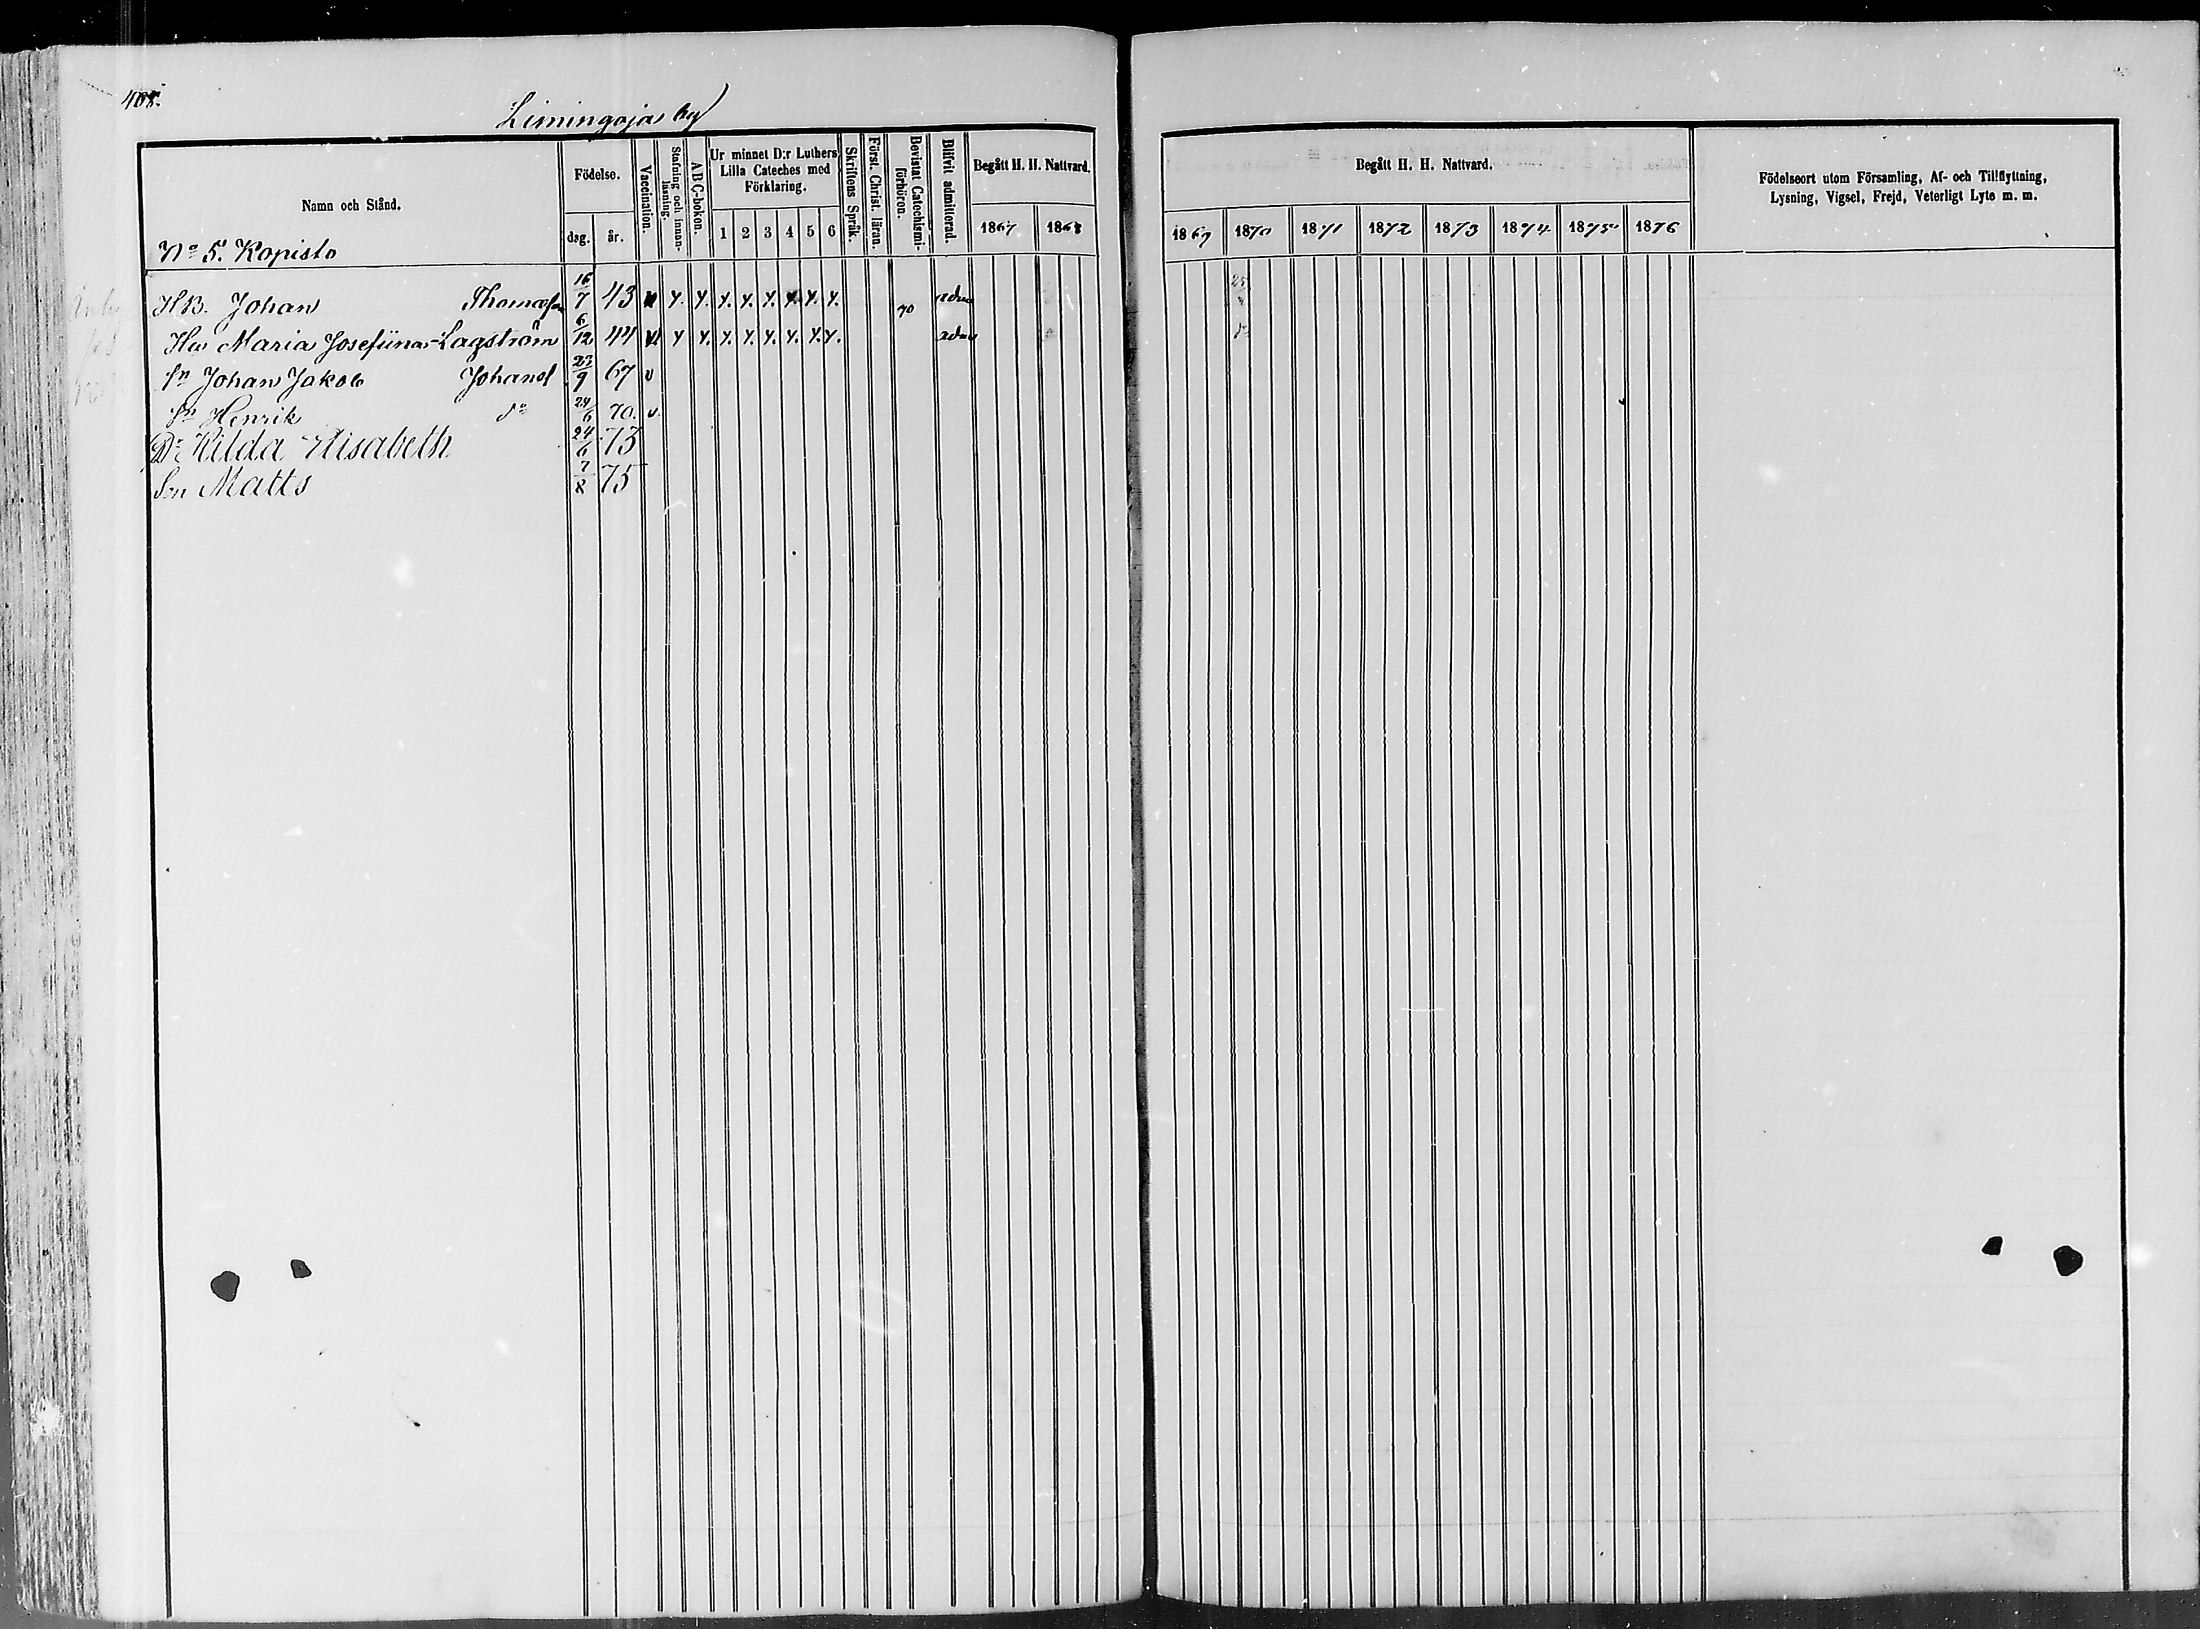 408.
Limingoja by
Namn och Stånd.
Födelse.
dag. år.
Vaccination.
Stafning och innanläsning.
ABC-boken.
Ur minnet D:r Luthers
Lilla Cateches med
Förklaring.
1 2 3 4 5 6
Skriftens Språk.
Först. Christ. läran.
Bevistat Catechismi-
förhören.
Blifvit admitterad.
Begått H. H. Nattvard.
1867 1868
Begått H. H. Nattvard.
1869 1870 1871 1872 1873 1874 1875 1876
Födelseort utom Församling, Af- och Tillflyttning,
Lysning, Vigsel, Frejd, Veterligt Lyte m. m.
No 5. Kopisto
HB. Johan Thomasson 16/7 43 v y. y. y. y. y. y. y. y. 70 adm
Hu Maria Josefiina Lagström 6/12 44 v y y. y. y. y. y. y. y. adm do
Sn Johan Jakob Johans 23/9 67 v
Sn Henrik do 24/6 70. v.
Dr Hilda Elisabeth 24/6 73
Son Matts 7/8 75